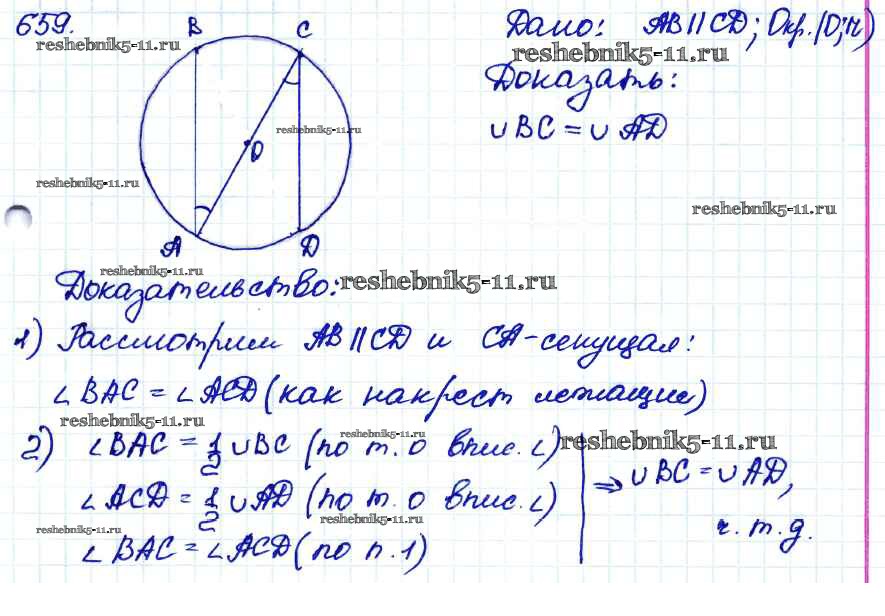 659.
Дано: AB || CD; Окр.(O; r)
reshebnik5-11.ru
reshebnik5-11.ru
Доказать:
∪ BC = ∪ AD
B
C
reshebnik5-11.ru
O
reshebnik5-11.ru
reshebnik5-11.ru
A
D
reshebnik5-11.ru
Доказательство:
reshebnik5-11.ru
1) Рассмотрим AB || CD и CA - секущая:
∠ BAC = ∠ ACD (как накрест лежащие)
reshebnik5-11.ru
2) ∠ BAC = 1/2 ∪ BC (по т. о впис. ∠)
reshebnik5-11.ru
reshebnik5-11.ru
∠ ACD = 1/2 ∪ AD (по т. о впис. ∠)
⇒ ∪ BC = ∪ AD,
reshebnik5-11.ru
reshebnik5-11.ru
∠ BAC = ∠ ACD (по п. 1)
ч. т. д.